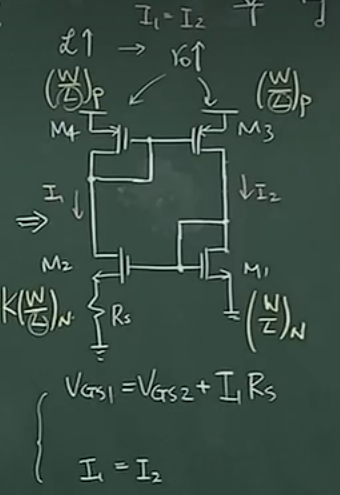 I₁ = I₂
L↑ → r₀↑
(W/L)P
(W/L)P
M4
M3
I₁ ↓
↓ I₂
⇒
M2
M1
K(W/L)N
Rs
(W/L)N
VGS1 = VGS2 + I₁ Rs
I₁ = I₂